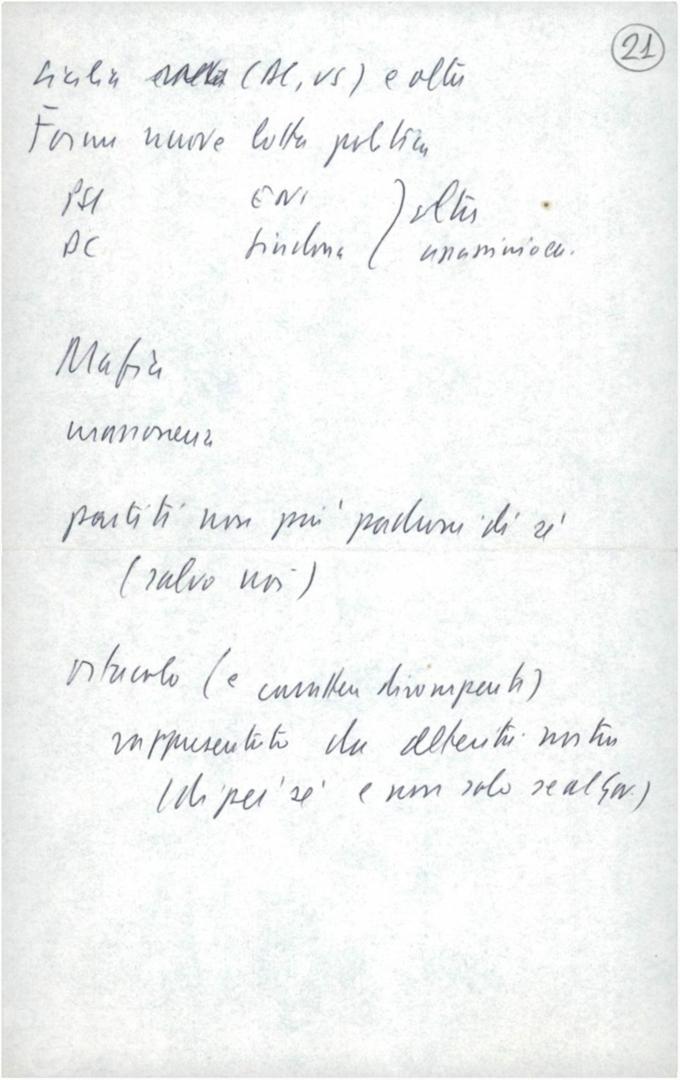 21
Sicilia (DC, US) e altri
Forme nuove lotta politica
PSI ENI ) altri
DC Sindona ( anassinioca.
Mafia
massoneria
partiti non più padroni di sé
(salvo noi)
ostacolo (e caratteri dirompenti)
rappresentato da alterità nostra
(di per sé e non solo se al Gov.)